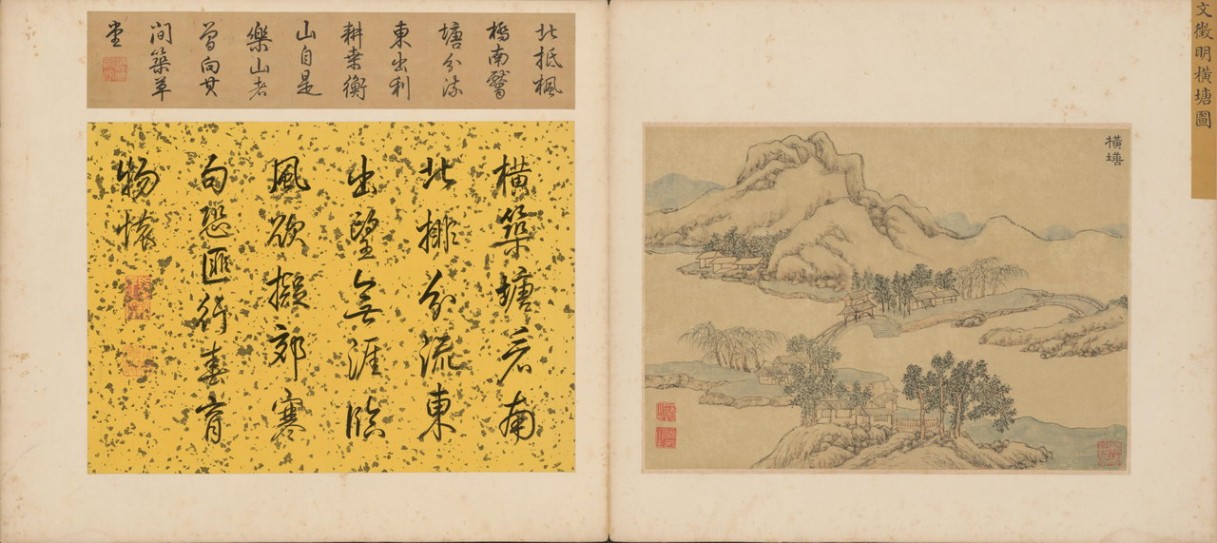 文徵明橫塘圖
橫塘
北抵楓
橋南
塘分流
東出利
耕桒衡
山自是
樂山者
曾向其
間築草
堂
橫築塘者南
北排分流東
出望無涯臨
風欲擬郊寒
句恐匪行春育
物懷